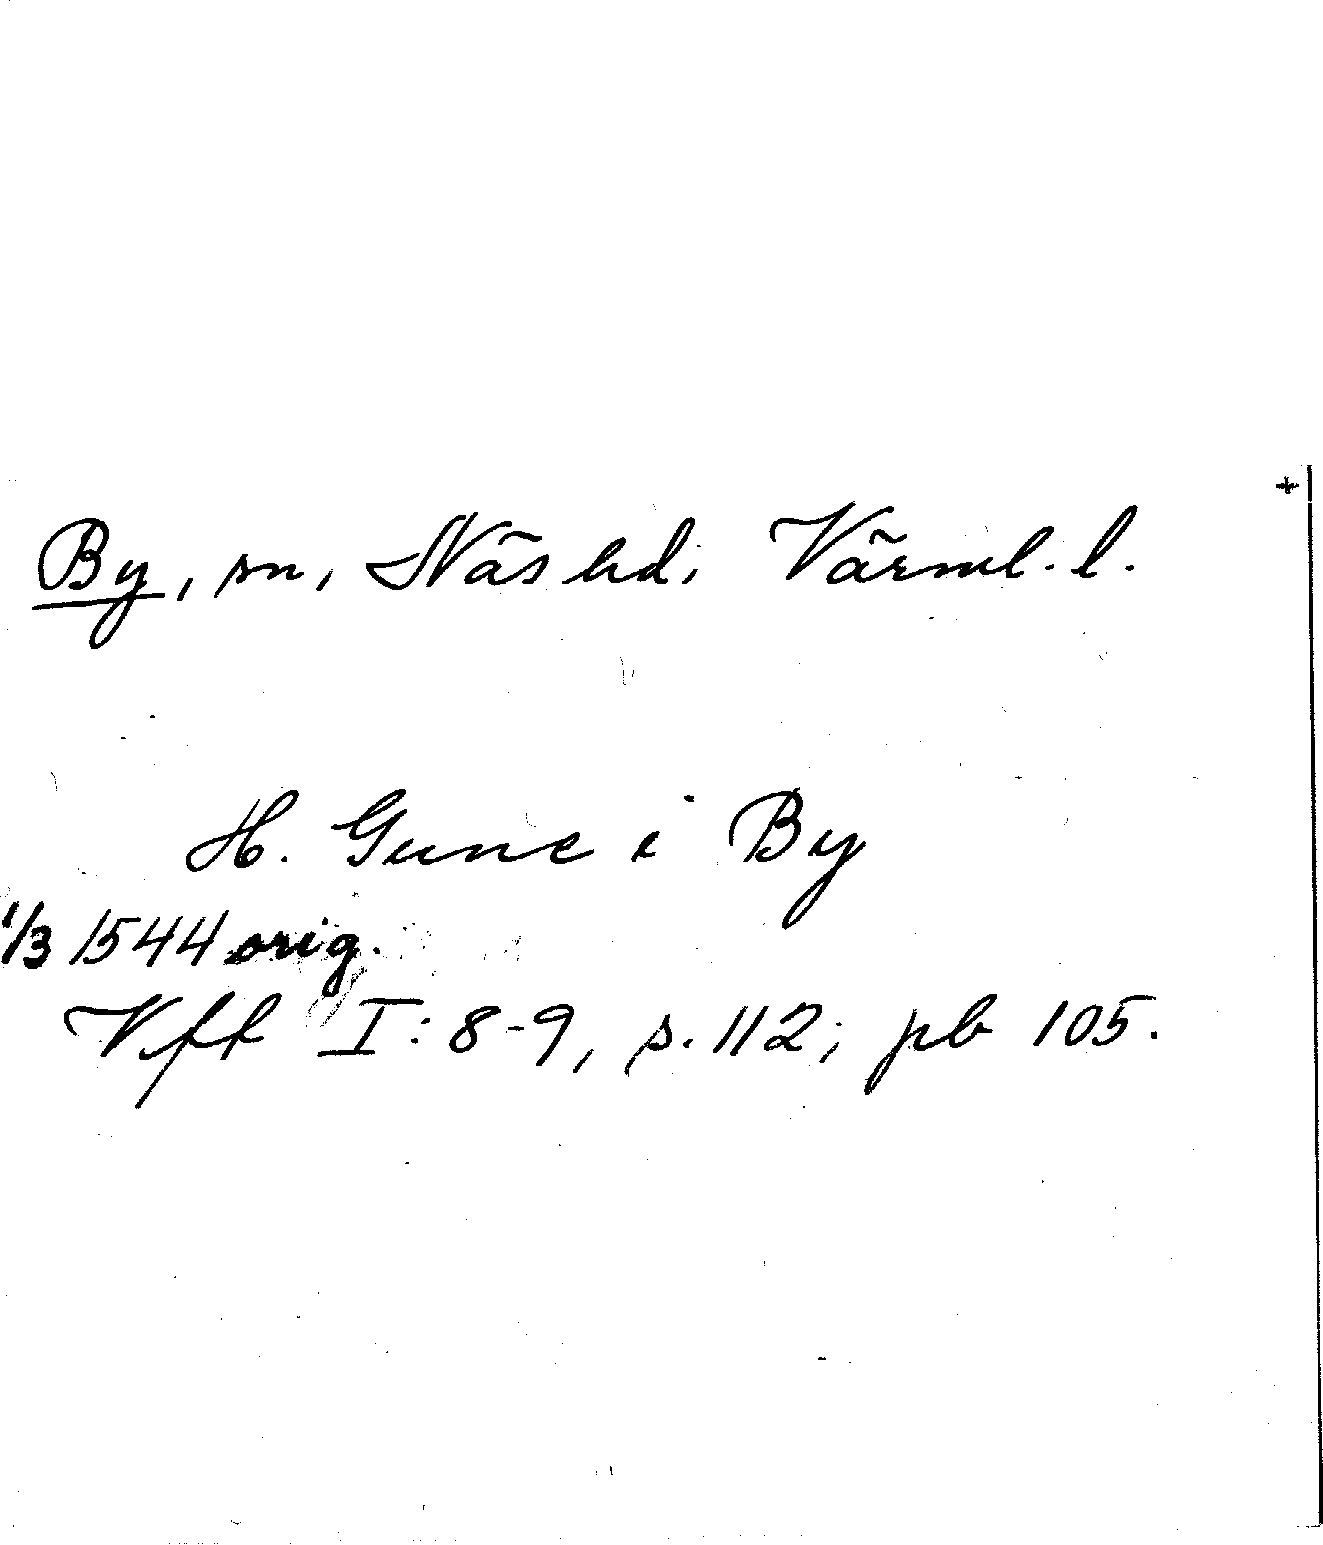 By, sn, Näs hd; Värml. l.
H. Gune i By
1/3 1544 orig.
Vff I: 8-9, s. 112; pb 105.